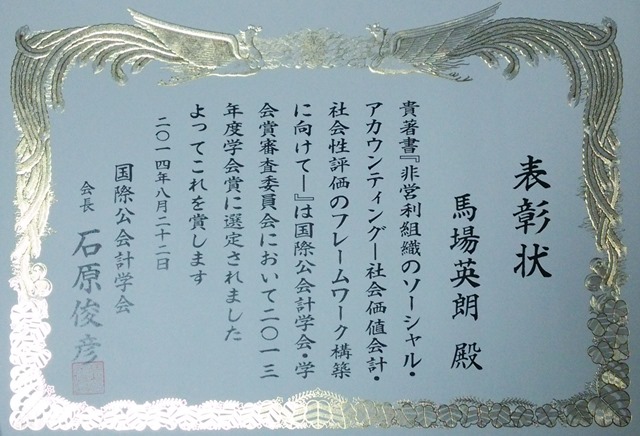 表彰状
馬場英朗 殿
貴著書『非営利組織のソーシャル・
アカウンティング―社会価値会計・
社会性評価のフレームワーク構築
に向けて―』は国際公会計学会・学
会賞審査委員会において二〇一三
年度学会賞に選定されました
よってこれを賞します
二〇一四年八月二十二日
国際公会計学会
会長 石原俊彦